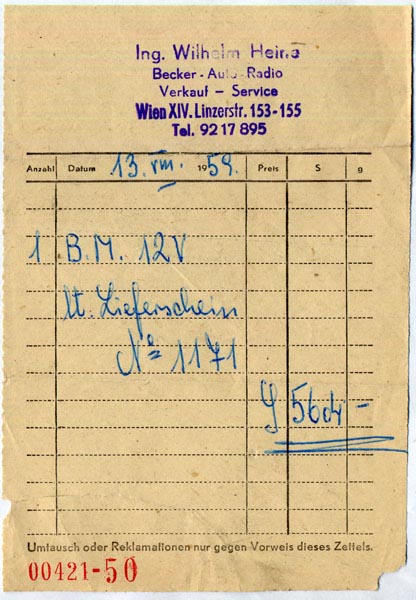 Ing. Wilhelm Heinz
Becker - Auto - Radio
Verkauf – Service
Wien XIV. Linzerstr. 153-155
Tel. 92 17 895
Anzahl Datum 13. VIII. 1959. Preis S g
1 B.M. 12V
lt. Lieferschein
Nº 1171
S 564 –
Umtausch oder Reklamationen nur gegen Vorweis dieses Zettels.
00421-50